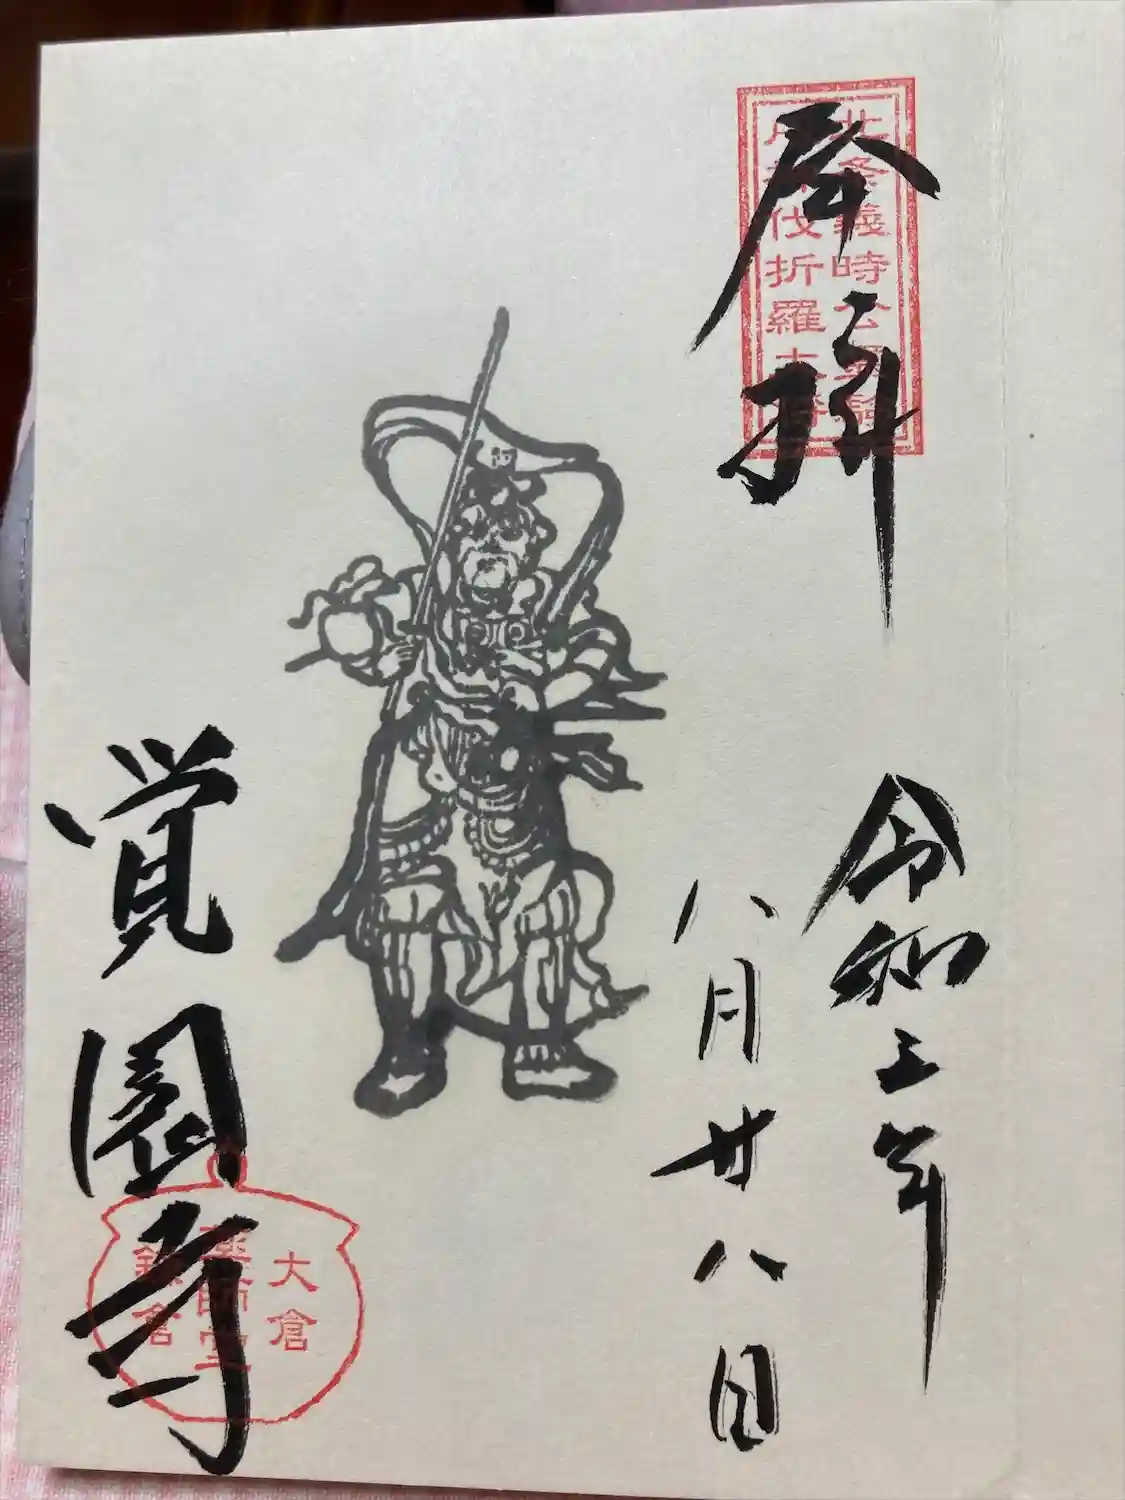 奉拝
北条義時公霊験
戌神伐折羅大将
令和三年
八月廿八日
覚園寺
大倉
薬師堂
鎌倉